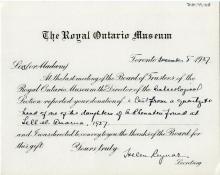 The Royal Ontario Museum
Toronto December 5 1927
Dear Madam,
At the last meeting of the Board of Trustees of the
Royal Ontario Museum the Director of the Archaeological
Section reported your donation of a Cast from a quartzite
head of one of the daughters of Akhenaten found at
Tell el Amarna, 1927.
and I was directed to convey to you the thanks of the Board for
this gift.
Yours truly
Helen
Secretary